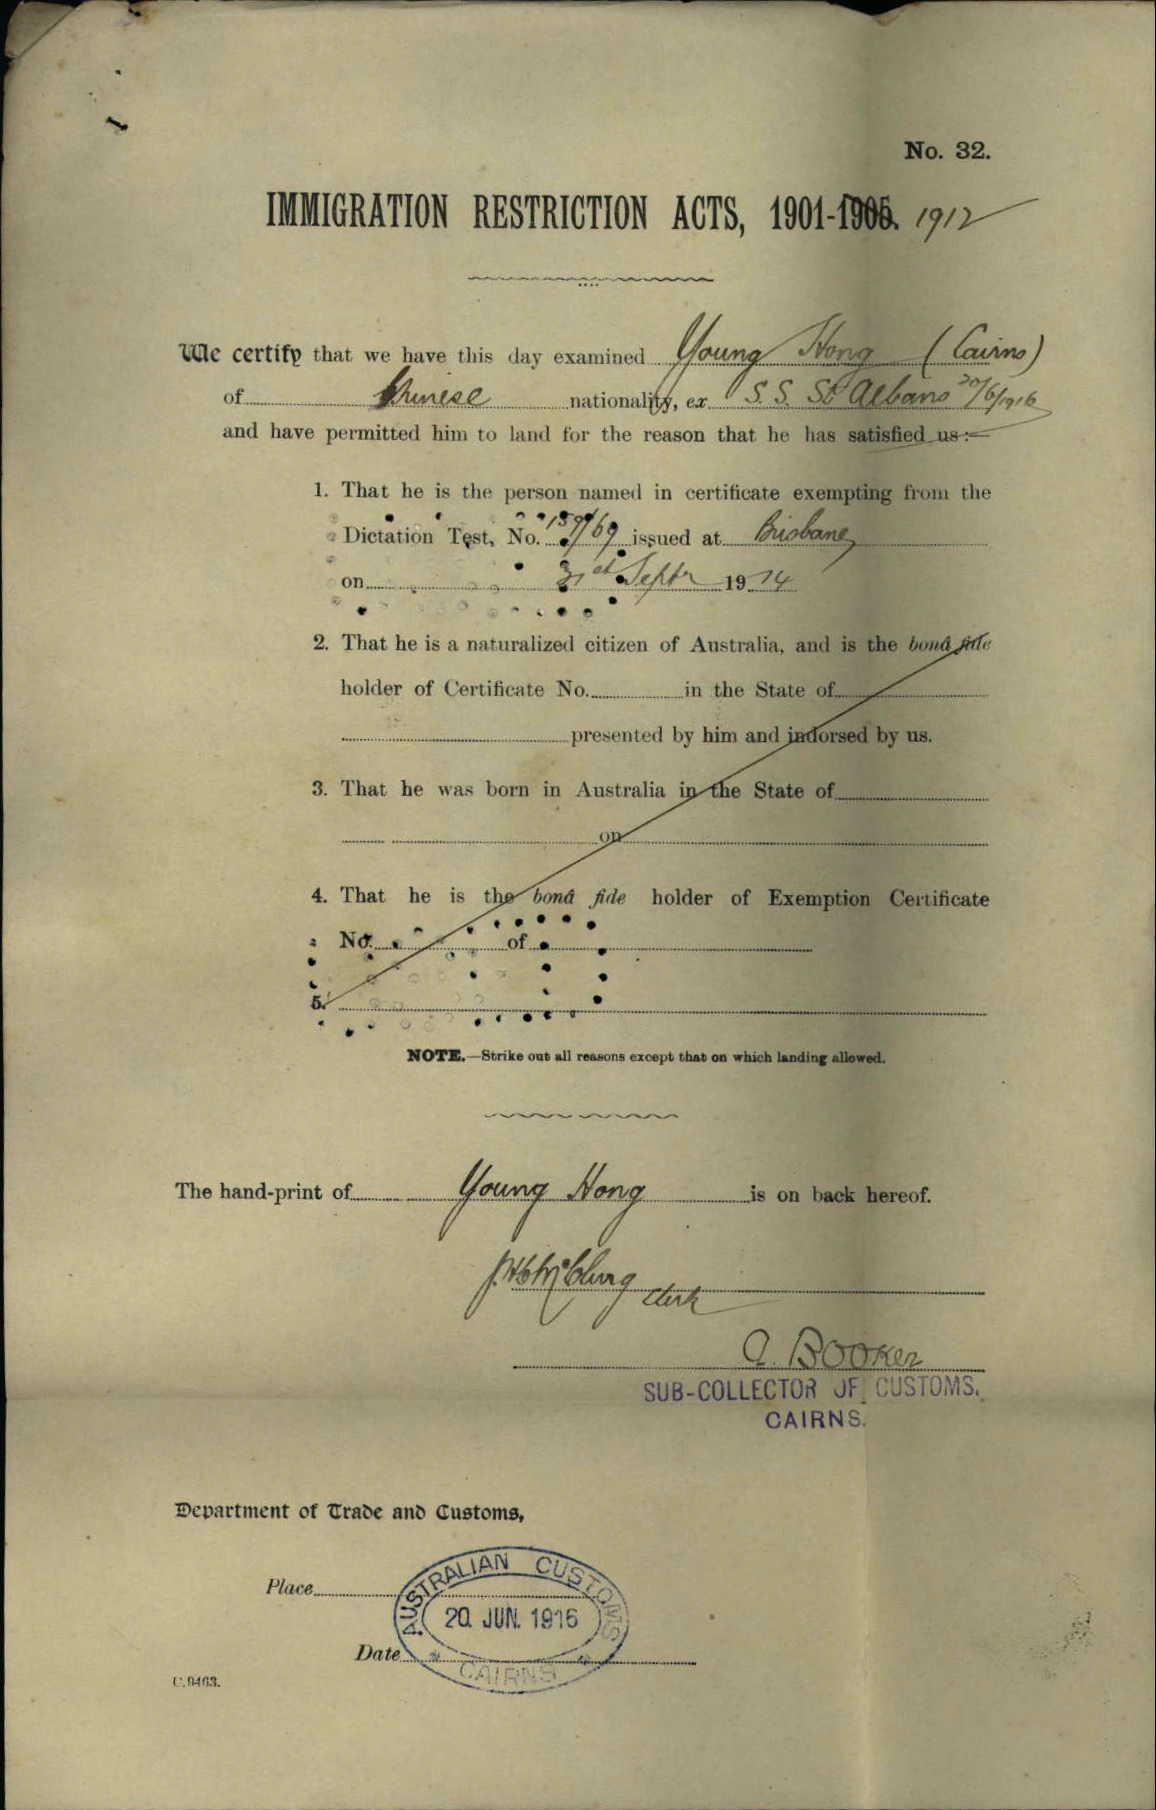 No. 32.
IMMIGRATION RESTRICTION ACTS, 1901-1905. 1912
We certify that we have this day examined Young Hong (Cairns)
of Chinese nationality, ex S. S. St Albans 20/6/1916
and have permitted him to land for the reason that he has satisfied us:—
1. That he is the person named in certificate exempting from the
Dictation Test, No. 159/69 issued at Brisbane
on 21st Septr 1914
2. That he is a naturalized citizen of Australia, and is the bonâ fide
holder of Certificate No. in the State of
presented by him and indorsed by us.
3. That he was born in Australia in the State of
on
4. That he is the bonâ fide holder of Exemption Certificate
No. of
5.
NOTE.—Strike out all reasons except that on which landing allowed.
The hand-print of Young Hong is on back hereof.
McClurg Clerk
A. Booker
SUB-COLLECTOR OF CUSTOMS.
CAIRNS.
Department of Trade and Customs,
Place
AUSTRALIAN CUSTOMS
20. JUN. 1916
CAIRNS
Date
C.9463.